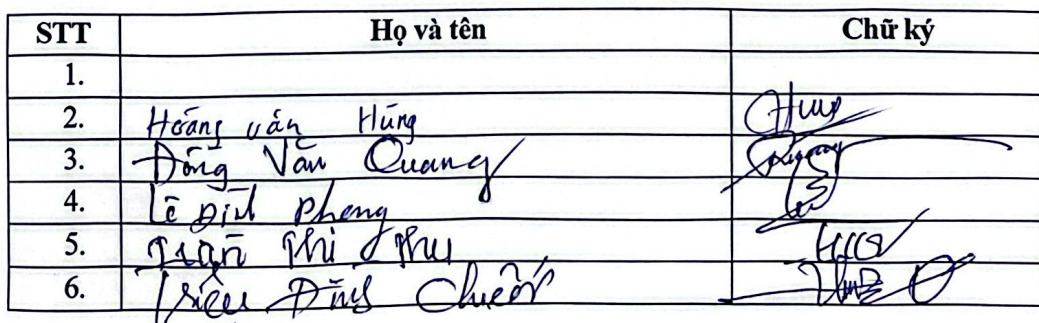 STT Họ và tên Chữ ký
1.
2. Hoàng văn Hùng Hùng
3. Đồng Văn Quang Quang
4. Lê Đình Phong
5. Trần Thị Thu
6. Triệu Đình